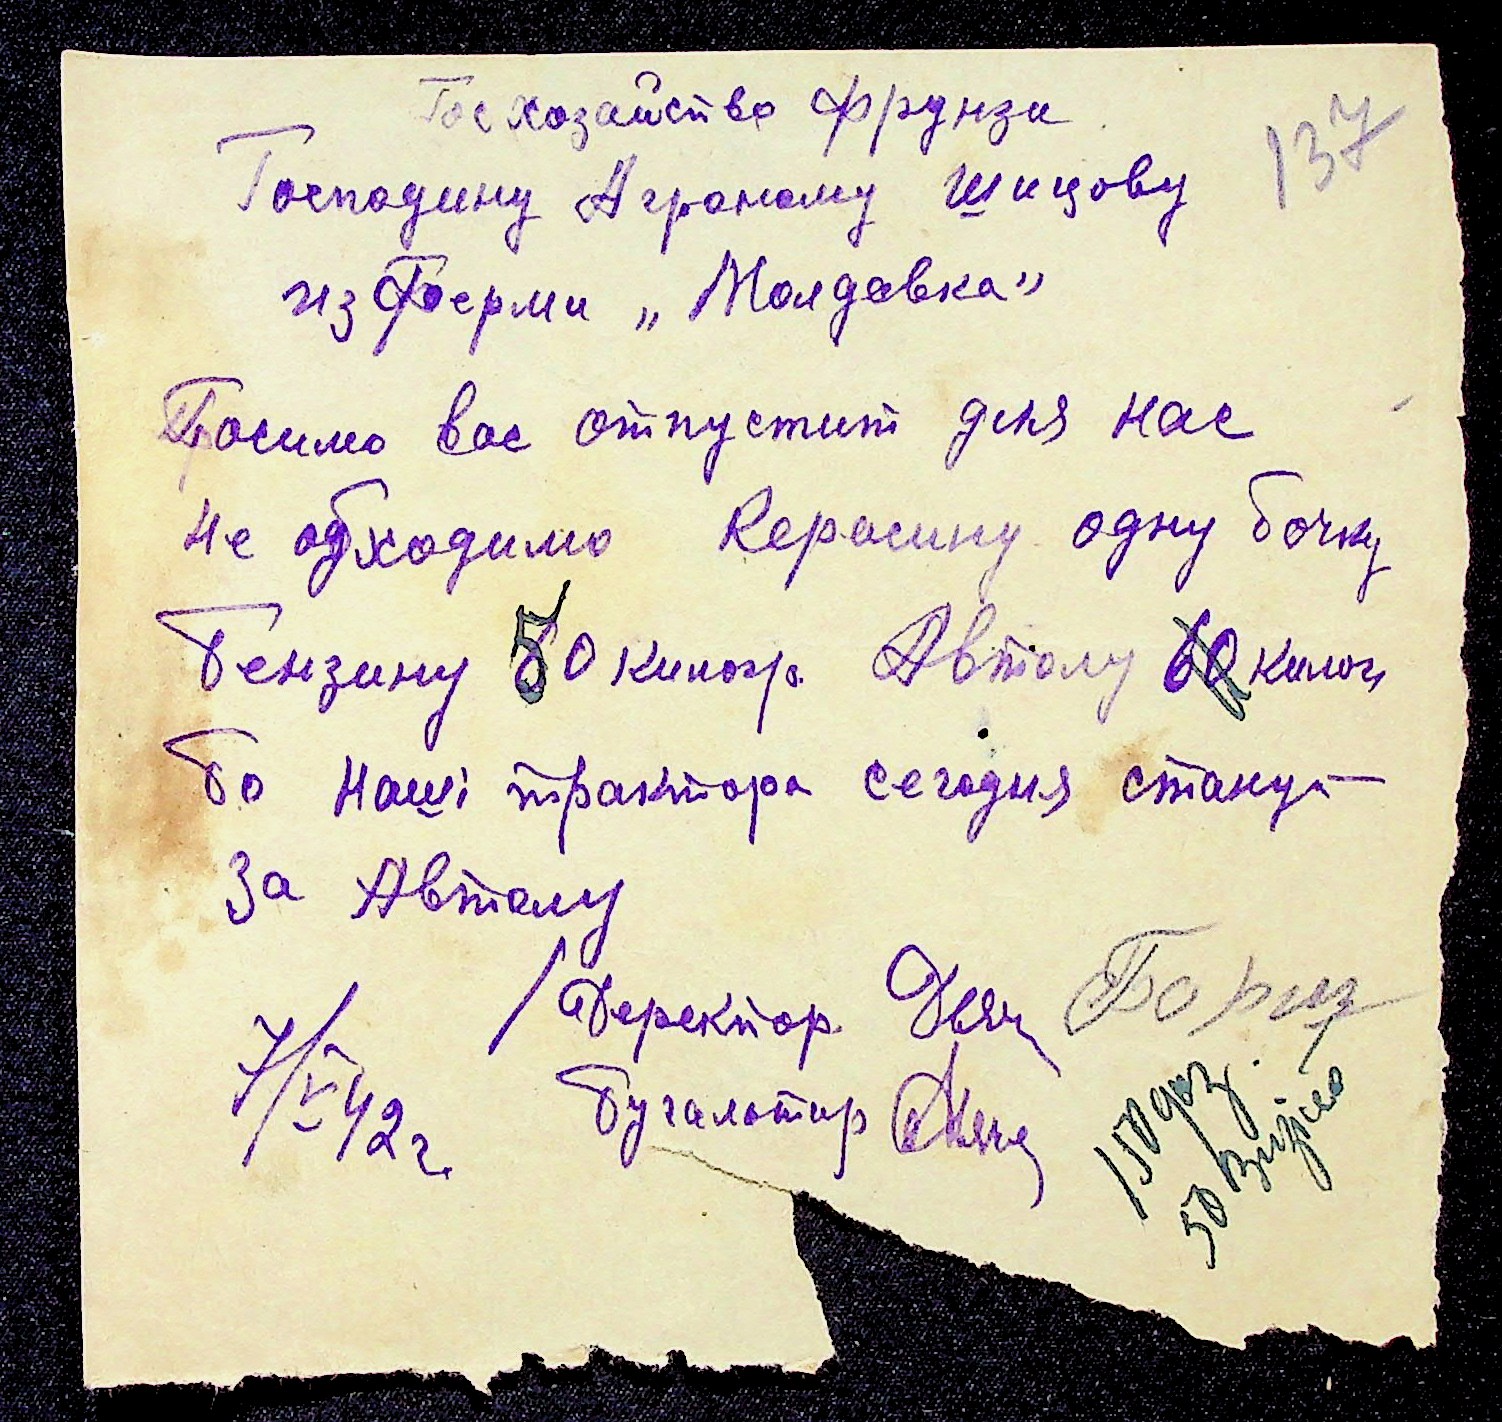 Госхозайство Фрунзи
137
Господину Агроному Шицову
из Ферми „Молдавка"
Просимо вас отпустит для нас
не обходимо Керосину одну бочку
Бензину 50 килогр. Автолу килог,
бо наші трактора сегодня станут
За Автолу
Деректор
7/V 42 г.
Бугалтир
150 gaz.
50